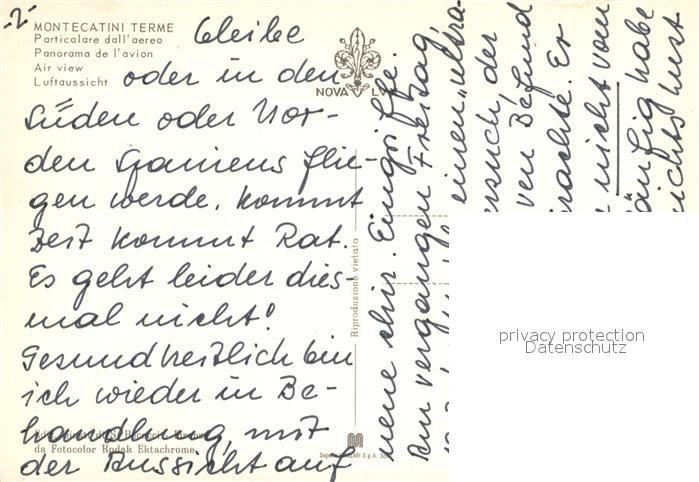 -2-
MONTECATINI TERME
Particolare dall'aereo
Panorama de l'avion
Air view
Luftaussicht
NOVA LV
bleibe
oder in den
Süden oder Nor-
den Spaniens flie-
gen werde. Kommt
Zeit kommt Rat.
Es geht leider dies-
mal nicht!
Gesundheitlich bin
ich wieder in Be-
handlung, mit
der Aussicht auf
da Fotocolor Kodak Ektachrome
Riproduzione vietata
S.p.A.
neue chir. Eingriffe.
Am vergangen Freitag
einen "ultra-
ersuch, der
ven Befund
rachte. Er
nicht vom
änfig habe
nichts hest
privacy protection
Datenschutz